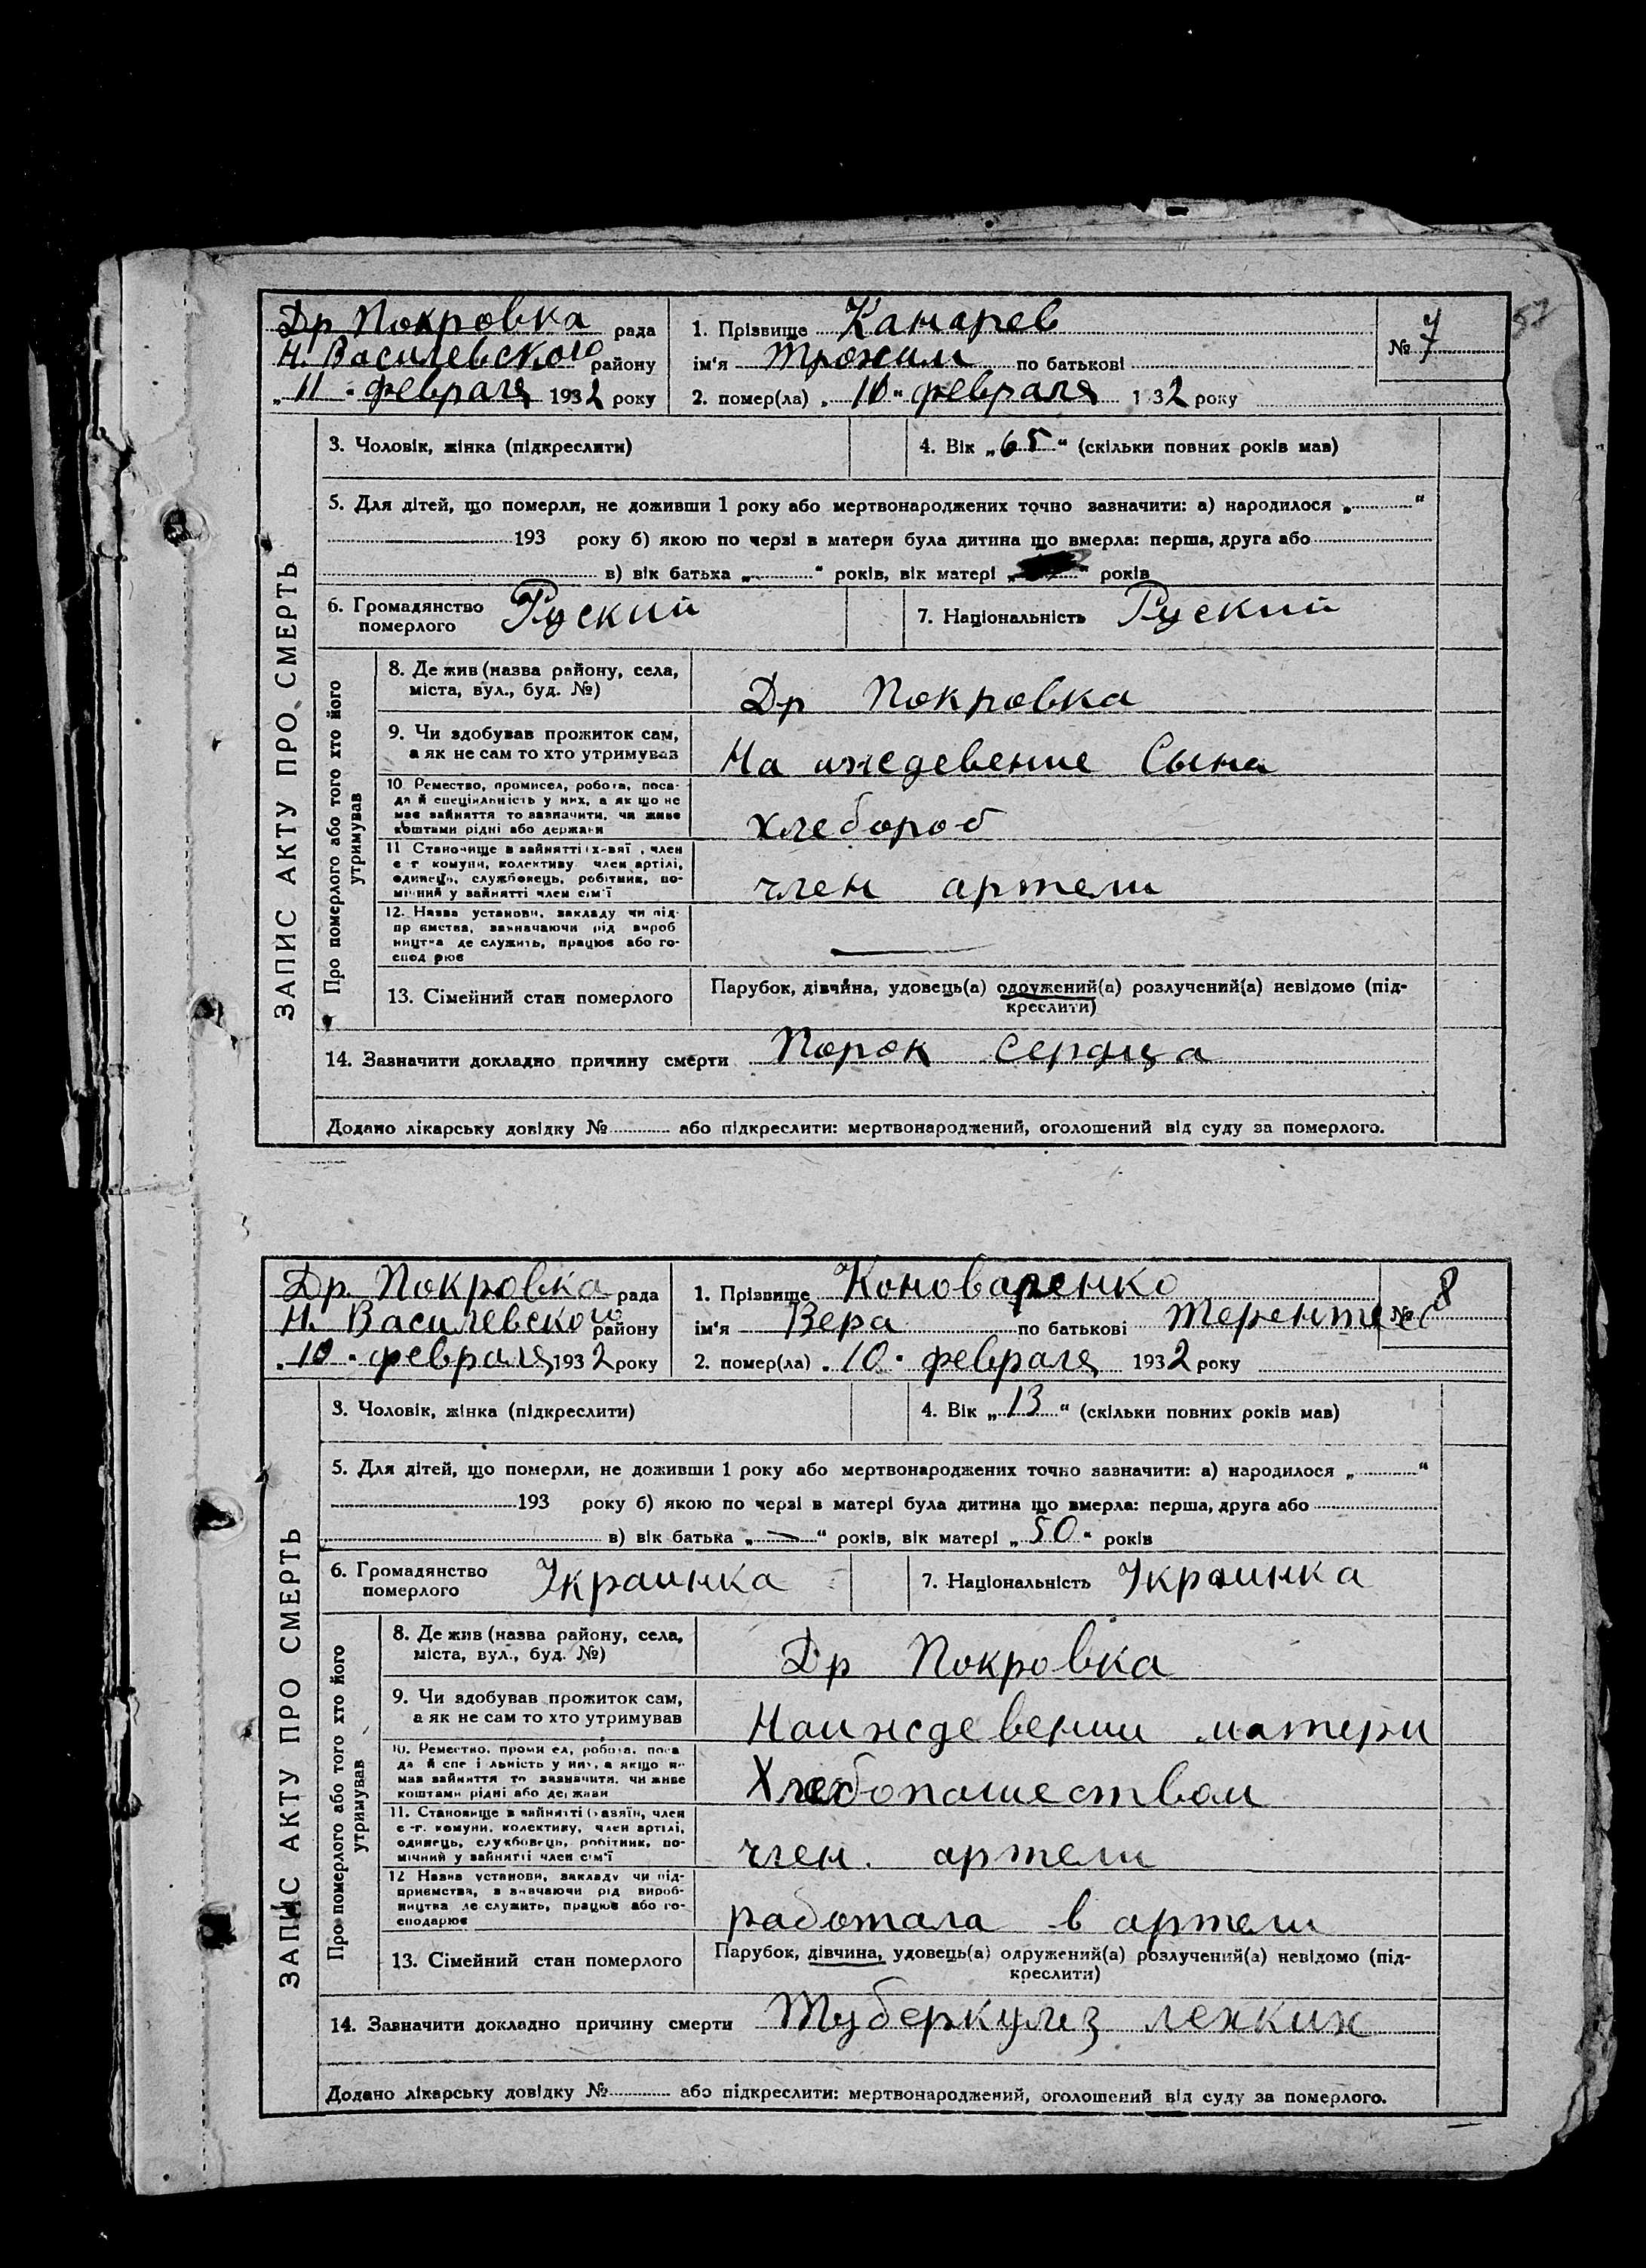 Др Покровка рада
Н. Василевского району
„11“ февраля 1932 року
1. Прізвище Канарев
ім'я Трохим по батькові
2. помер(ла) „10“ февраля 1 32 року
№ 7
57
ЗАПИС АКТУ ПРО СМЕРТЬ
3. Чоловік, жінка (підкреслити)
4. Вік „65“ (скільки повних років мав)
5. Для дітей, що померли, не доживши 1 року або мертвонароджених точно зазначити: а) народилося „ “
193 року б) якою по черзі в матери була дитина що вмерла: перша, друга або
в) вік батька „ “ років, вік матері „ “ років
6. Громадянство померлого Руский
7. Національність Руский
Про померлого або того хто його утримував
8. Де жив (назва району, села,
міста, вул., буд. №)
Др Покровка
9. Чи здобував прожиток сам,
а як не сам то хто утримував
На иждевение Сына
10. Ремество, промисел, робота, поса-
да й спеціяльність у них, а як що не
має зайняття то зазначити, чи живе
коштами рідні або держави
хлебороб
11 Становище в зайнятті (х-вяї , член
с -г комуни, колективу член артілі,
одинець, службовець, робітник, по-
мічний у зайнятті член сім'ї
член артели
12. Назва установи, закладу чи під-
пр ємства, зазначаючи рід вироб
ництва де служить, працює або го-
спод рює
13. Сімейний стан померлого
Парубок, дівчина, удовець(а) одружений(а) розлучений(а) невідомо (під-
креслити)
14. Зазначити докладно причину смерти Порок сердца
Додано лікарську довідку № або підкреслити: мертвонароджений, оголошений від суду за померлого.
Др. Покровка рада
Н. Василевского району
„10“ февраля 1932 року
1. Прізвище Коноваренко
ім'я Вера по батькові
2. помер(ла) „10“ февраля 1932 року
№ 8
ЗАПИС АКТУ ПРО СМЕРТЬ
3. Чоловік, жінка (підкреслити)
4. Вік „13“ (скільки повних років мав)
5. Для дітей, що померли, не доживши 1 року або мертвонароджених точно зазначити: а) народилося „ “
193 року б) якою по черзі в матері була дитина що вмерла: перша, друга або
в) вік батька „—“ років, вік матері „50“ років
6. Громадянство померлого Украинка
7. Національність Украинка
Про померлого або того хто його утримував
8. Де жив (назва району, села,
міста, вул., буд. №)
Др Покровка
9. Чи здобував прожиток сам,
а як не сам то хто утримував
Наиждевении матери
10. Ремество, проми ел, робота, поса
да й спе і льність у них, а якщо н
має зайняття то зазначити, чи живе
коштами рідні або держави
Хлебопашеством
11. Становище в зайнятті (хазяїн, член
с -г. комуни, колективу, член артілі,
одинець, службовець, робітник, по-
мічний у зайнятті член сім'ї
член. артели
12 Назва установи, закладу чи під-
приємства, зазначаючи рід вироб-
ництва де служить, працює або го-
сподарює
работала в артели
13. Сімейний стан померлого
Парубок, дівчина, удовець(а) одружений(а) розлучений(а) невідомо (під-
креслити)
14. Зазначити докладно причину смерти Туберкулиз лехких
Додано лікарську довідку № або підкреслити: мертвонароджений, оголошений від суду за померлого.